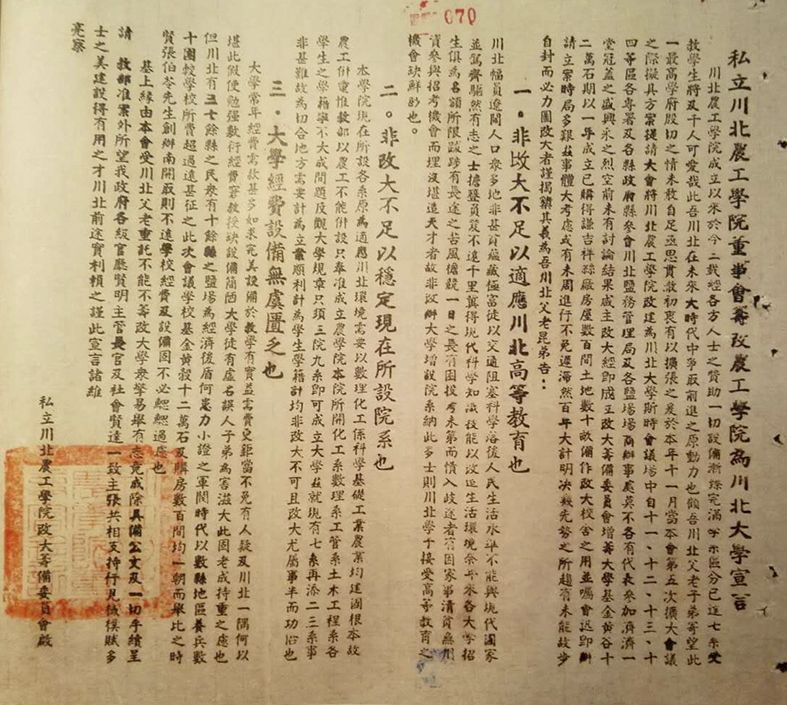 070
私立川北農工學院董事會籌改農工學院為川北大學宣言
川北農工學院成立以來於今二載經各方人士之贊助一切設備漸臻完滿學系區分已達七系受
教學生將及千人可愛哉此吾川北在未來大時代中爭取前進之原動力也顧吾川北父老子弟寄望此
一最高學府殷切之情未敢自足亟思貫敝初衷有以擴張之爰於本年十一月當本會第五次擴大會議
之際擬具方案提請大會將川北農工學院改建為川北大學斯時會議場中自十一、十二、十三、十
四等區各專署及各縣政府縣參會川北鹽務管理局及各鹽場場商辦事處莫不各有代表來加濟濟一
堂冠蓋之盛興永之烈空前未有討論結果咸主改大經即成立改大籌備委員會增籌大學基金黃谷十
二萬石期以一年成立已購得謙吉祥絲廠房屋數百間土地數十畝備作改大校舍之用並囑會迅即辦
請立案時局多艱茲事體大考慮或有未周進行不免遲滯然百年大計明决幾先勢之所趨有未能故步
自封而必力圖改大者謹揭櫫其義為吾川北父老昆弟告：
一・非改大不足以適應川北高等教育也
川北幅員遼闊人口眾多地非甚貧蘊藏極富徒以交通阻塞科學落後人民生活水準不能與現代國家
並駕齊驅然有志之士擔簦負笈不遠千里冀得現代科學知識技能以改進生活環境祭年來各大學招
生俱為名額所限跋跡有長途之苦風簷競一日之長有困拔考未第而憤入歧途者有因家事清貧無川
資參與招考機會而埋沒堪造大才者故非改辦大學增設院系納此多士則川北學子接受高等教育之
機會玦鮮酌也。
二。非改大不足以穩定現在所設院系也
本學院現在所設各系原為適應川北環境需要以數理化工係科學基礎工業農業均建國根本故
農工併重惟教部以農工不能併設只奉准成立農學院本院所開化工系數理系工管系土木工程系各
學生之學籍率不大成問題反觀大學規章只須三院九系即可成立大學茲就現有七系再添二三系事
非甚難故為切合地方需要計為立案順利計為學生學籍計均非改大不可且改大尤屬事半而功倍也
三・大學經費設備無虞匱乏也
大學常年經費需款甚多如果完美設備於教學有實益需費更鉅當不免有人疑及川北一隅何以
堪此假使勉强敷衍經費窘教授缺設備簡陋大學徒有虛名誤人子弟為害滋大此固老成持重之慮也
但川北有三七十餘縣之民眾有十餘縣之鹽場為經濟後盾何患力小證之軍閥時代以數縣地區養兵數
十團較學校所費超過遠甚征之此次會議學校基金黃榖十二萬石及購房數百間均一朝而舉比之時
賢張伯苓先生創辦南開嚴則不逮學校經費及設備固不必鰓鰓過慮也
基上緣由本會受川北父老重託不能不籌改大學眾擎易舉有志竟成除具備公文及一切手續呈
請 教部准案外所望我政府各級官廳賢明主管長官及社會賢達一致主張共相支持行見棫樸賦多
士之美建設得有用之才川北前途實利賴之謹此宣言諸維
亮察
私立川北農工學院改大籌備委員會啟